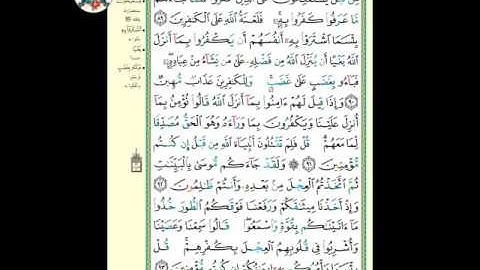 مِن قَبْلُ يَسْتَفْتِحُونَ عَلَى الَّذِينَ كَفَرُوا فَلَمَّا جَاءَهُم
مَّا عَرَفُوا كَفَرُوا بِهِ فَلَعْنَةُ اللَّهِ عَلَى الْكَافِرِينَ ٨٩
بِئْسَمَا اشْتَرَوْا بِهِ أَنفُسَهُمْ أَن يَكْفُرُوا بِمَا أَنزَلَ
اللَّهُ بَغْيًا أَن يُنَزِّلَ اللَّهُ مِن فَضْلِهِ عَلَى مَن يَشَاءُ مِنْ عِبَادِهِ
فَبَاءُو بِغَضَبٍ عَلَى غَضَبٍ وَلِلْكَافِرِينَ عَذَابٌ مُّهِينٌ
٩٠ وَإِذَا قِيلَ لَهُمْ ءَامِنُوا بِمَا أَنزَلَ اللَّهُ قَالُوا نُؤْمِنُ بِمَا
أُنزِلَ عَلَيْنَا وَيَكْفُرُونَ بِمَا وَرَاءَهُ وَهُوَ الْحَقُّ مُصَدِّقًا
لِّمَا مَعَهُمْ قُلْ فَلِمَ تَقْتُلُونَ أَنبِيَاءَ اللَّهِ مِن قَبْلُ إِن كُنتُم
مُّؤْمِنِينَ ٩١ ۞ وَلَقَدْ جَاءَكُم مُّوسَى بِالْبَيِّنَاتِ
ثُمَّ اتَّخَذْتُمُ الْعِجْلَ مِن بَعْدِهِ وَأَنتُمْ ظَالِمُونَ ٩٢
وَإِذْ أَخَذْنَا مِيثَاقَكُمْ وَرَفَعْنَا فَوْقَكُمُ الطُّورَ خُذُوا
مَا ءَاتَيْنَاكُم بِقُوَّةٍ وَاسْمَعُوا قَالُوا سَمِعْنَا وَعَصَيْنَا
وَأُشْرِبُوا فِي قُلُوبِهِمُ الْعِجْلَ بِكُفْرِهِمْ قُلْ
بِئْسَمَا يَأْمُرُكُم بِهِ إِيمَانُكُمْ إِن كُنتُم مُّؤْمِنِينَ ٩٣